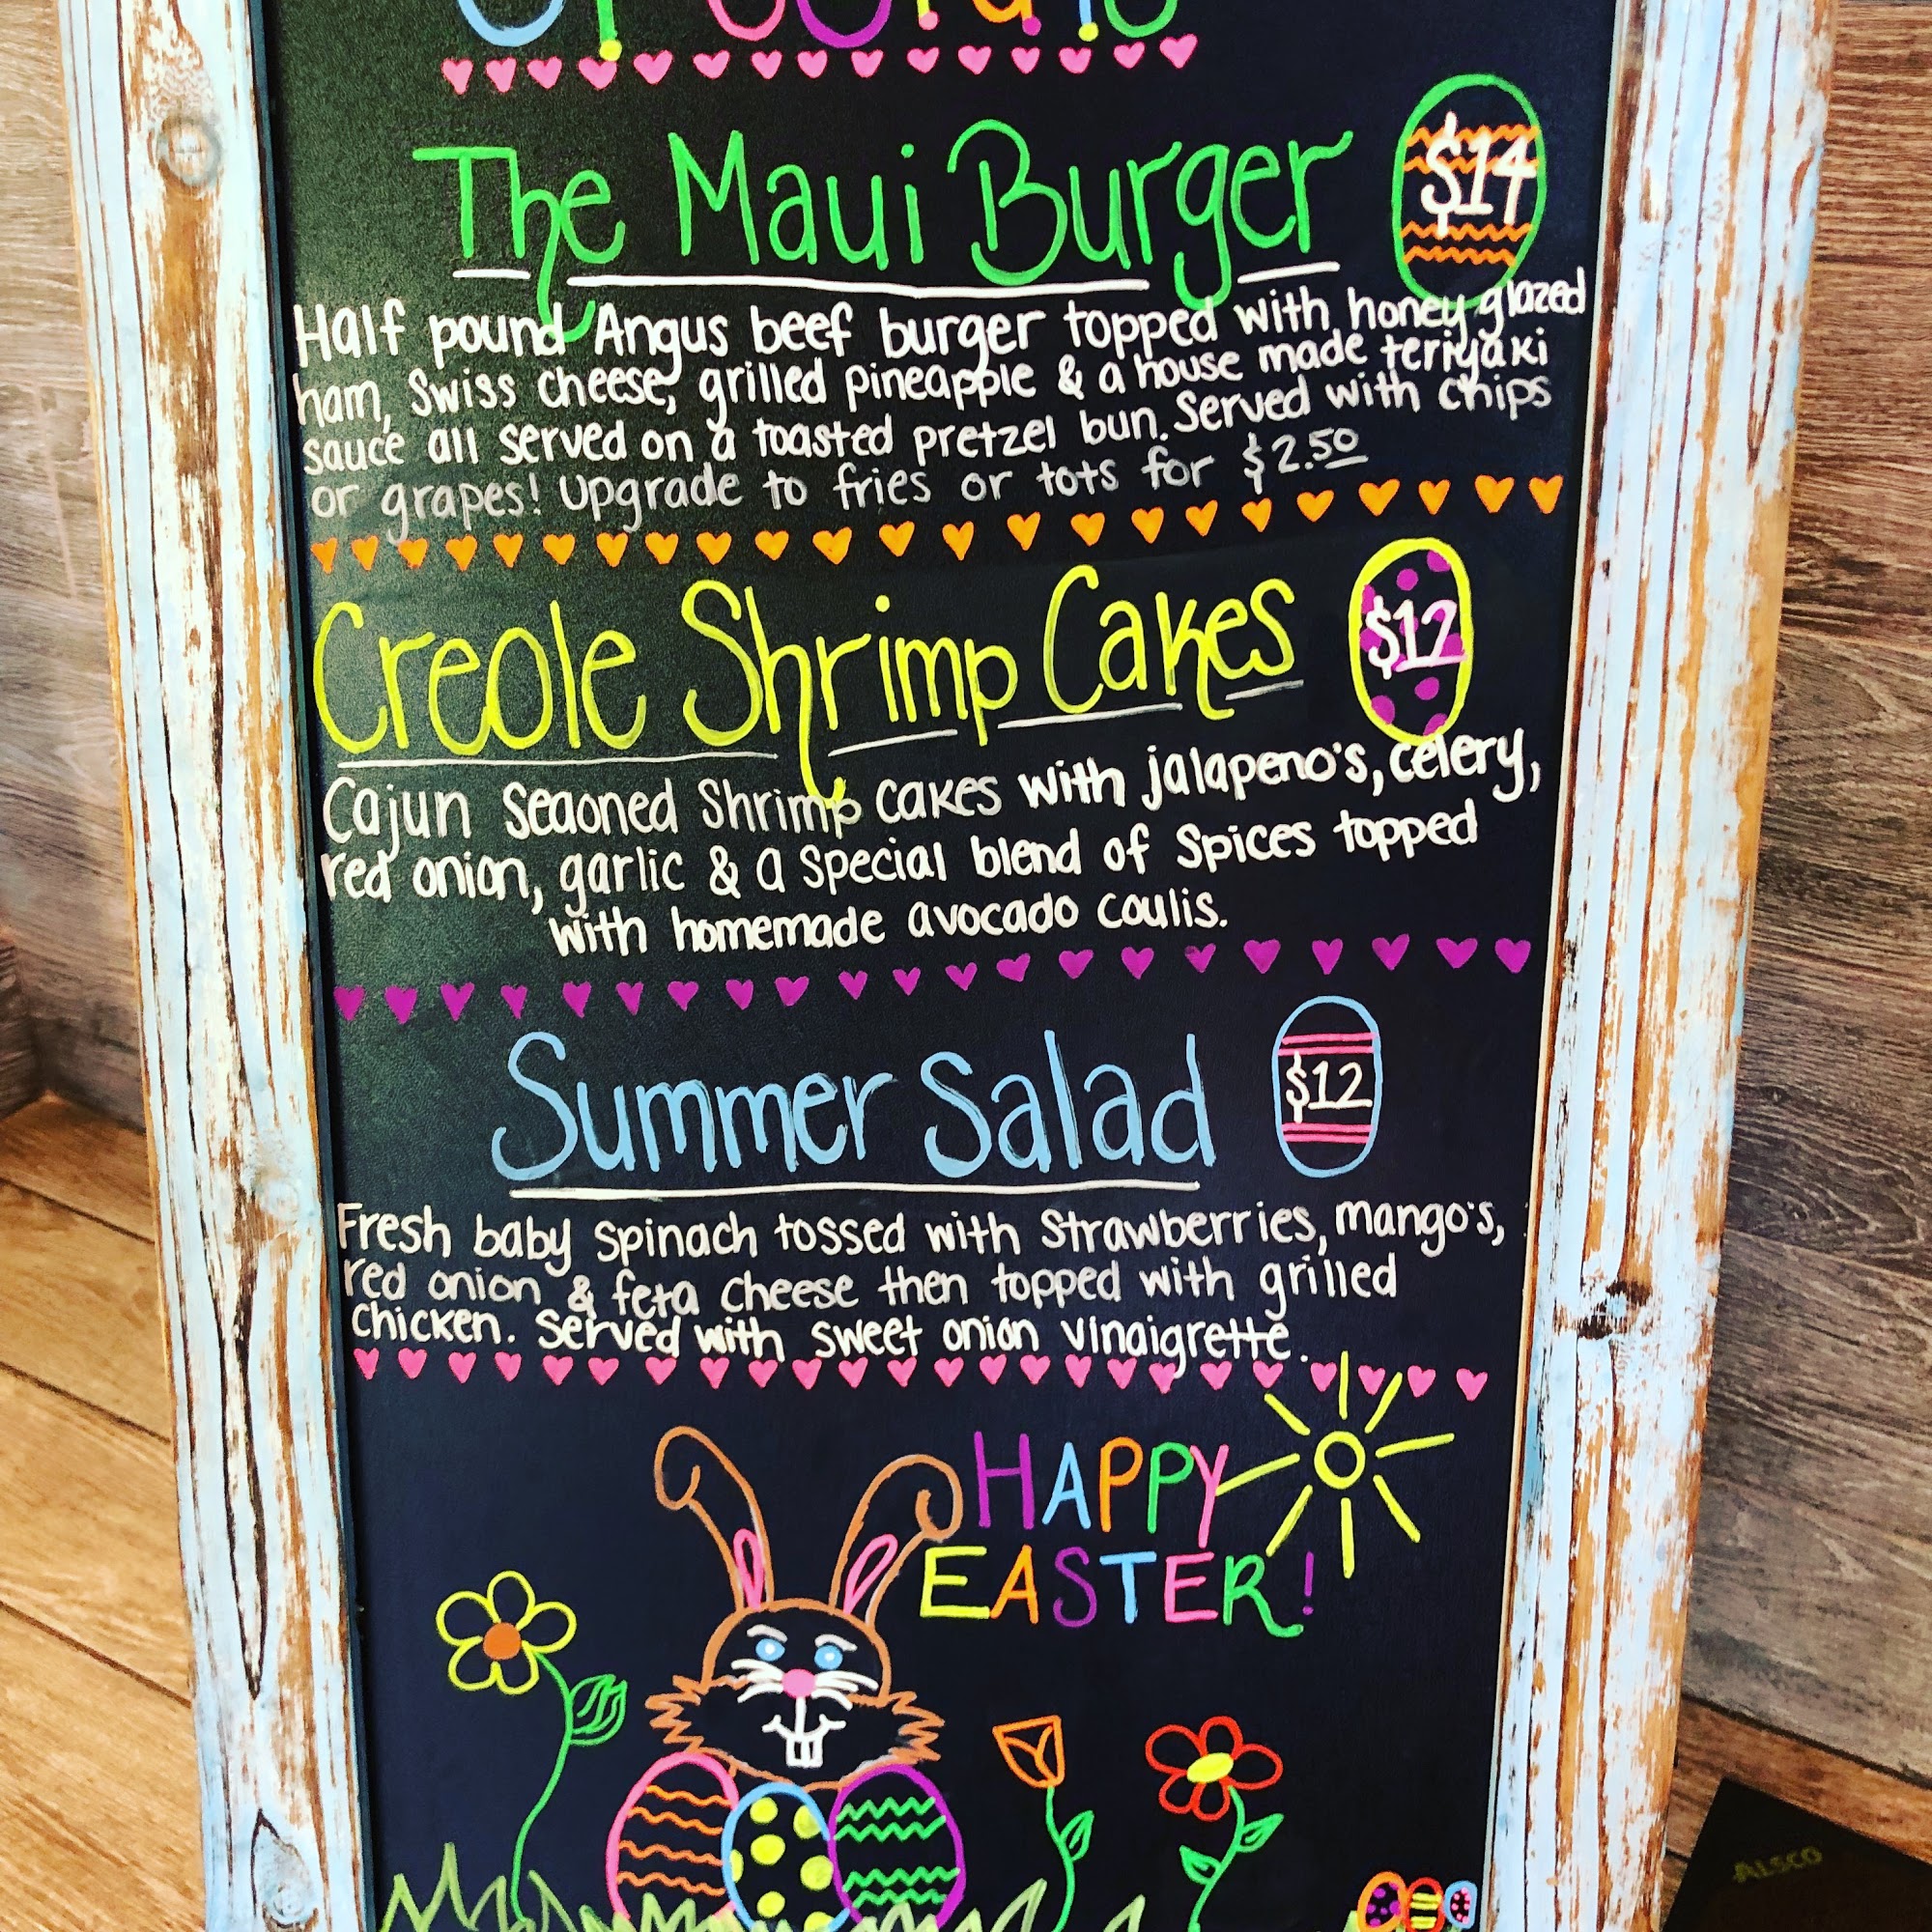 The Maui Burger $14
Half pound Angus beef burger topped with honey glazed
ham, Swiss cheese, grilled pineapple & a house made teriyaki
sauce all served on a toasted pretzel bun. Served with chips
or grapes! Upgrade to fries or tots for $2.50
Creole Shrimp Cakes $12
Cajun Seaoned Shrimp cakes with jalapeno's, celery,
red onion, garlic & a special blend of spices topped
with homemade avocado coulis.
Summer Salad $12
Fresh baby spinach tossed with strawberries, mango's,
red onion & feta cheese then topped with grilled
chicken. Served with sweet onion vinaigrette.
HAPPY
EASTER!
ALSCO